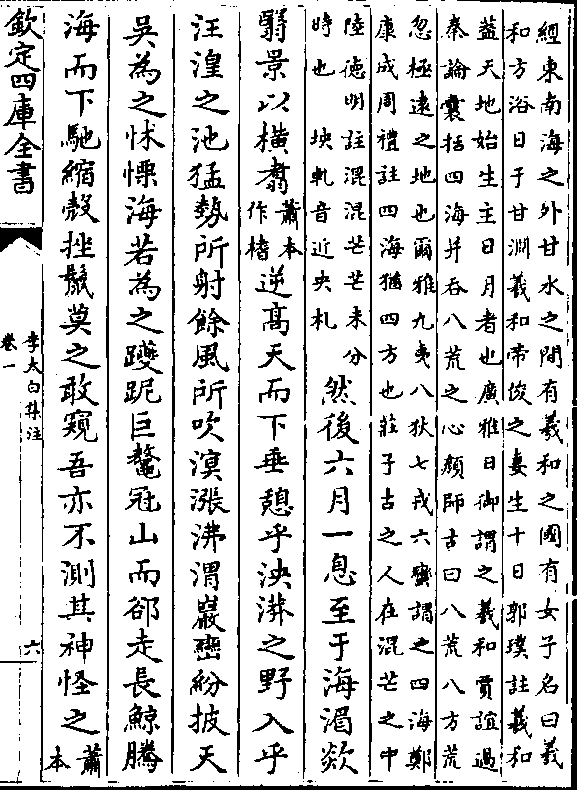 經東南海之外甘水之間有羲和之國有女子名曰羲
和方浴日于甘淵羲和帝俊之妻生十日郭璞註羲和
蓋天地始生主日月者也廣雅日御謂之羲和賈誼過
秦論囊括四海并吞八荒之心顏師古曰八荒八方荒
忽極遠之地也爾雅九夷八狄七戎六蠻謂之四海鄭
康成周禮註四海猶四方也莊子古之人在混芒之中
陸德明註混混芒芒未分
時也 坱軋音近央札
然後六月一息至于海湄欻
翳景以橫翥蕭本作楮逆髙天而下垂憩乎泱漭之野入乎
汪湟之池猛勢所射餘風所吹溟漲沸渭巖巒紛披天
吳為之怵慄海若為之躨跜巨鼇冠山而郤走長鯨騰
海而下馳縮殼挫鬣莫之敢窺吾亦不測其神怪之蕭本
欽定四庫全書
李太白集注
卷一
六